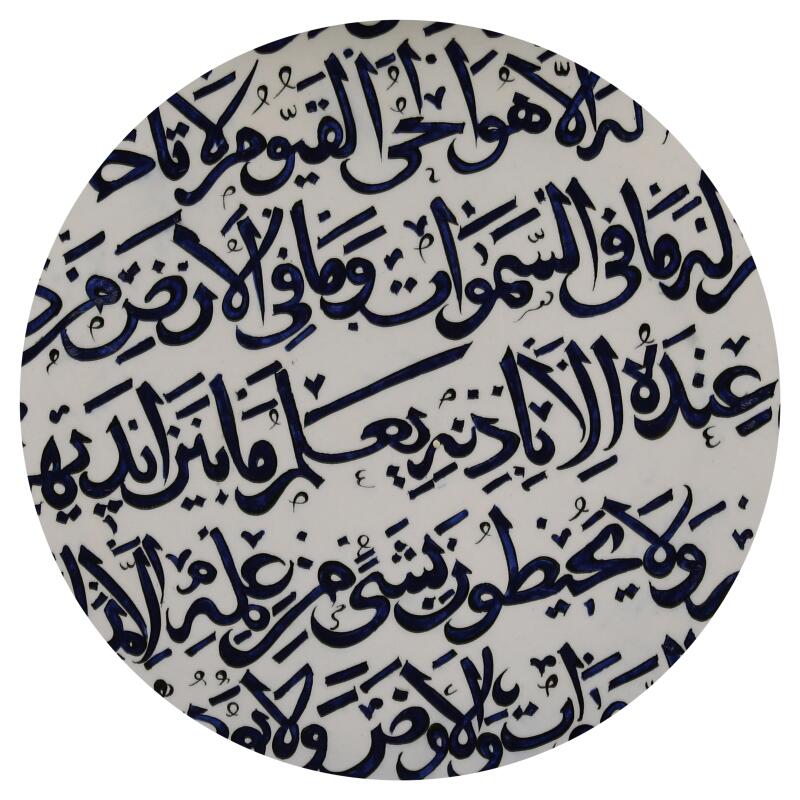 إله إلا هو الحي القيوم لا تأخذ
له ما في السموات وما في الأرض من ذ
عنده إلا بإذنه يعلم ما بين أيديهم
ولا يحيطون بشيء من علمه إلا بما
السموات والأرض ولا يؤده